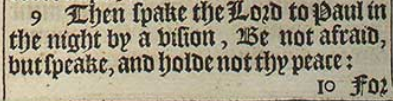 9 Then ſpake the Lord to Paul in
the night by a viſion, Be not afraid,
but ſpeake, and holde not thy peace:
10 For